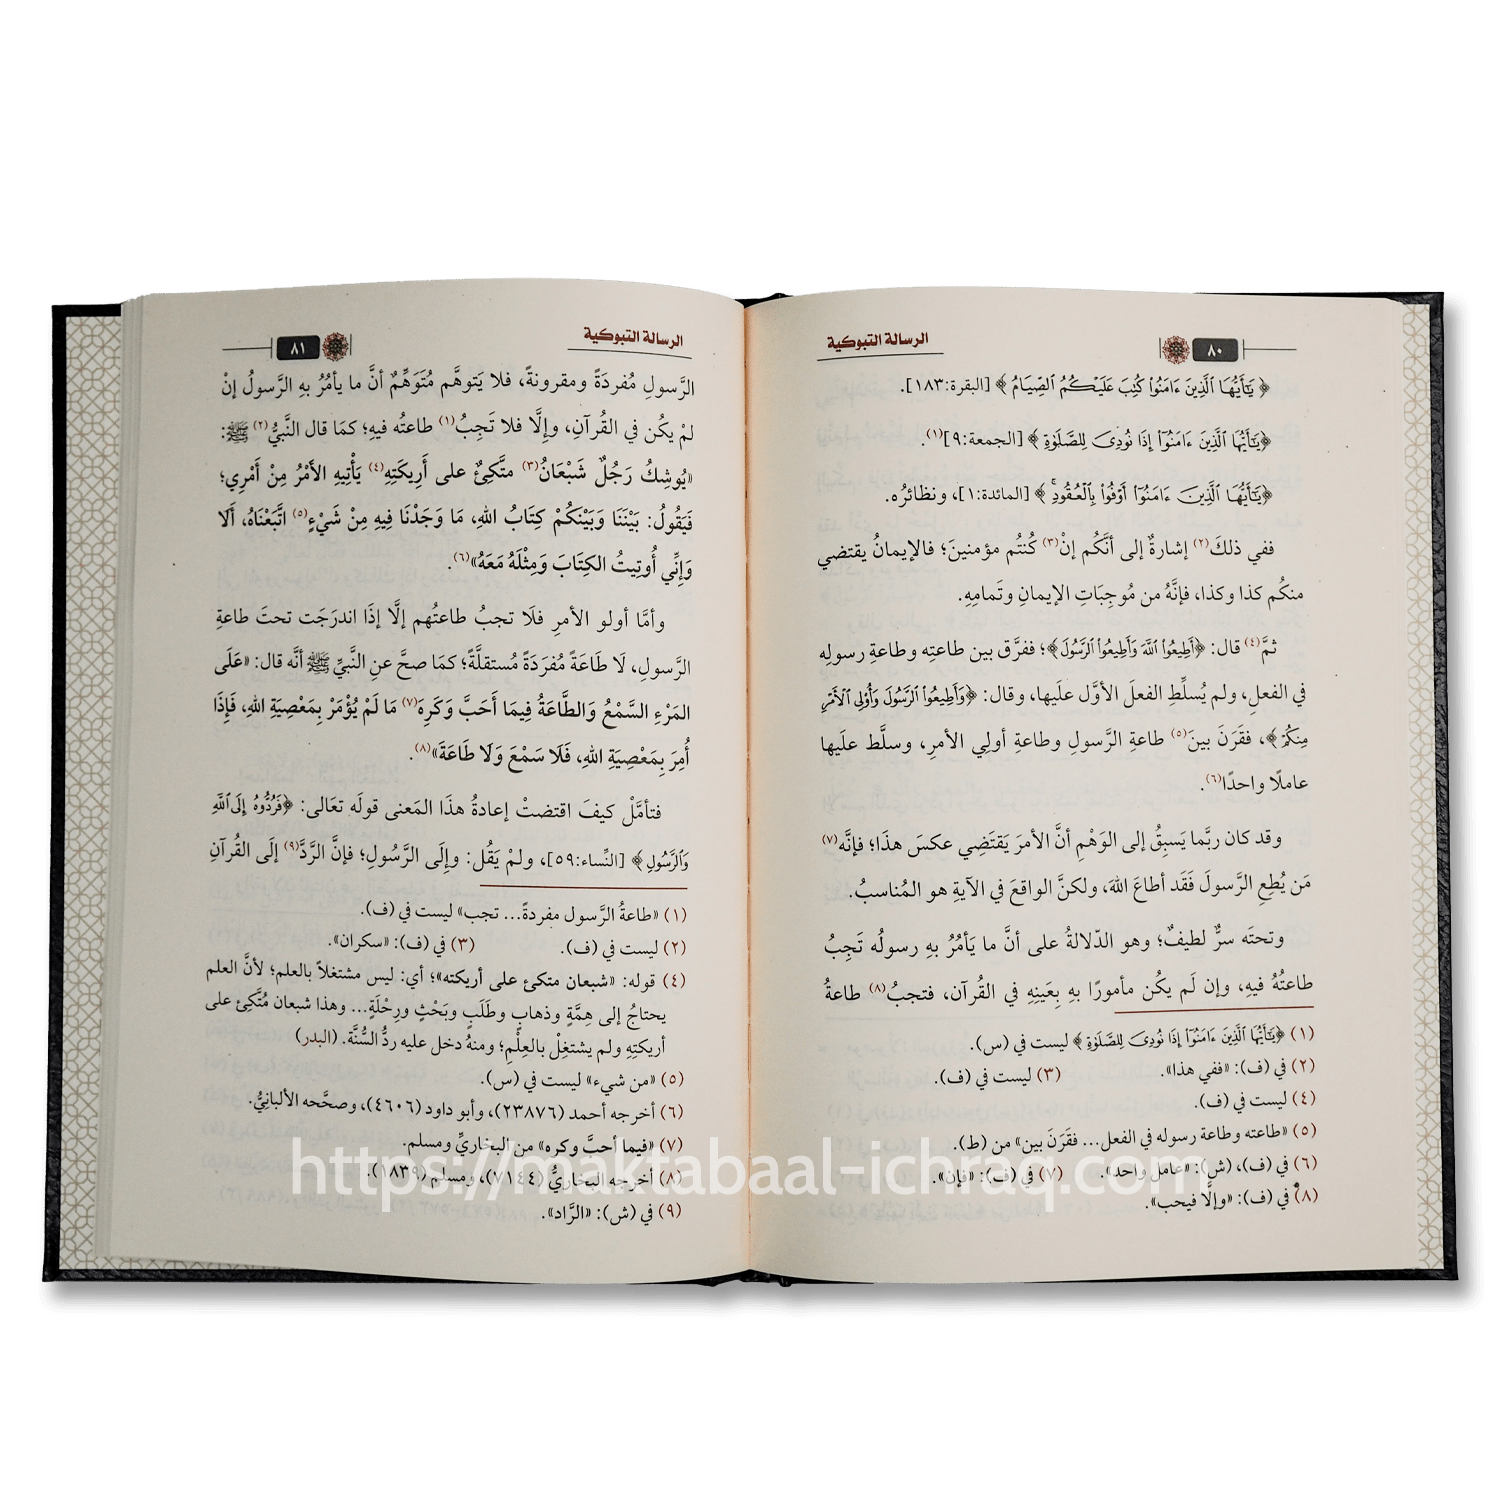 الرسالة التبوكية
٨٠
﴿ يَٰٓأَيُّهَا ٱلَّذِينَ ءَامَنُوا۟ كُتِبَ عَلَيْكُمُ ٱلصِّيَامُ ﴾ [البقرة:١٨٣].
﴿يَٰٓأَيُّهَا ٱلَّذِينَ ءَامَنُوٓا۟ إِذَا نُودِىَ لِلصَّلَوٰةِ ﴾ [الجمعة:٩](١).
﴿يَٰٓأَيُّهَا ٱلَّذِينَ ءَامَنُوٓا۟ أَوْفُوا۟ بِٱلْعُقُودِ ۚ ﴾ [المائدة:١]، ونظائرُه.
ففي ذلكَ(٢) إشارةٌ إلى أنَّكُم إنْ(٣) كُنتُم مؤمنينَ؛ فالإيمانُ يقتضي
منكُم كذا وكذا، فإنَّهُ من مُوجِبَاتِ الإيمانِ وتَمامِهِ.
ثمَّ(٤) قال: ﴿أَطِيعُوا۟ ٱللَّهَ وَأَطِيعُوا۟ ٱلرَّسُولَ﴾؛ ففرَّق بين طاعتِه وطاعةِ رسولِه
في الفعلِ، ولم يُسلِّطِ الفعلَ الأوَّل علَيها، وقال: ﴿وَأَطِيعُوا۟ ٱلرَّسُولَ وَأُو۟لِى ٱلْأَمْرِ
مِنكُمْ﴾، فقَرَنَ بينَ(٥) طاعةِ الرَّسولِ وطاعةِ أولِي الأمرِ، وسلَّط علَيها
عاملًا واحدًا(٦).
وقد كان ربَّما يَسبِقُ إلى الوَهْمِ أنَّ الأمرَ يَقتَضِي عكسَ هذَا؛ فإنَّه(٧)
مَن يُطِعِ الرَّسولَ فَقَد أطاعَ اللهَ، ولكنَّ الواقعَ في الآيةِ هو المُناسبُ.
وتحتَه سرٌّ لطيفٌ؛ وهو الدّلالةُ على أنَّ ما يَأمُرُ بهِ رسولُه تَجِبُ
طاعتُهُ فيهِ، وإن لَم يكُن مأمورًا بهِ بِعَينِهِ في القُرآن، فتجبُ(٨) طاعةُ
(١) ﴿يَٰٓأَيُّهَا ٱلَّذِينَ ءَامَنُوٓا۟ إِذَا نُودِىَ لِلصَّلَوٰةِ ﴾ ليست في (س).
(٢) في (ف): «ففي هذا». (٣) ليست في (ف).
(٤) ليست في (ف).
(٥) «طاعته وطاعة رسوله في الفعل... فقَرَنَ بين» من (ط).
(٦) في (ف)، (ش): «عامل واحد». (٧) في (ف): «فإن».
(٨) في (ف): «وإلَّا فيحب».
الرسالة التبوكية
٨١
الرَّسولِ مُفردَةً ومقرونةً، فلا يَتوهَّم مُتَوَهِّمٌ أنَّ ما يأمُرُ بهِ الرَّسولُ إنْ
لمْ يكُن في القُرآنِ، وإلَّا فلا تَجِبُ(١) طاعتُه فيهِ؛ كمَا قال النَّبيُّ(٢) ﷺ:
«يُوشِكُ رَجُلٌ شَبْعَانُ(٣) متَّكِئٌ على أَرِيكَتِهِ(٤) يَأْتِيهِ الأَمْرُ مِنْ أَمْرِي؛
فَيَقُولُ: بَيْنَنَا وَبَيْنَكُمْ كِتَابُ اللهِ، مَا وَجَدْنَا فِيهِ مِنْ شَيْءٍ(٥) اتَّبَعْنَاهُ، أَلَا
وَإِنِّي أُوتِيتُ الكِتَابَ وَمِثْلَهُ مَعَهُ»(٦).
وأمَّا أولو الأمرِ فلَا تجبُ طاعتُهم إلَّا إذَا اندرَجَت تحتَ طاعةِ
الرَّسولِ، لَا طَاعَةً مُفرَدَةً مُستقلَّةً؛ كمَا صحَّ عنِ النَّبيِّ ﷺ أنَّه قال: «عَلَى
المَرْءِ السَّمْعُ وَالطَّاعَةُ فِيمَا أَحَبَّ وَكَرِهَ(٧) مَا لَمْ يُؤْمَرْ بِمَعْصِيَةِ اللهِ، فَإِذَا
أُمِرَ بِمَعْصِيَةِ اللهِ، فَلَا سَمْعَ وَلَا طَاعَةَ»(٨).
فتأمَّلْ كيفَ اقتضتْ إعادةُ هذَا المَعنى قولَه تعَالى: ﴿فَرُدُّوهُ إِلَى ٱللَّهِ
وَٱلرَّسُولِ ﴾ [النِّساء:٥٩]، ولمْ يَقُل: وإِلَى الرَّسُولِ؛ فإنَّ الرَّدَّ(٩) إلَى القُرآنِ
(١) «طاعةُ الرَّسول مفردةً... تجب» ليست في (ف).
(٢) ليست في (ف). (٣) في (ف): «سكران».
(٤) قوله: «شبعان متكئ على أريكته»؛ أي: ليس مشتغلاً بالعلم؛ لأنَّ العلم
يحتاجُ إلى هِمَّةٍ وذهابٍ وطلَبٍ وبَحْثٍ ورِحْلَةٍ... وهذا شبعان مُتَّكِئ على
أريكتِهِ ولم يشتغِلْ بالعِلْمِ؛ ومنهُ دخل عليه ردُّ السُّنَّة. (البدر)
(٥) «من شيء» ليست في (س).
(٦) أخرجه أحمد (٢٣٨٧٦)، وأبو داود (٤٦٠٦)، وصحَّحه الألبانِيُّ.
(٧) «فيما أحبَّ وكره» من البخاريِّ ومسلم.
(٨) أخرجه البخاريُّ (٧١٤٤)، ومسلم (١٨٣٩).
(٩) في (ش): «الرَّاد».
https://maktabaal-ichraq.com